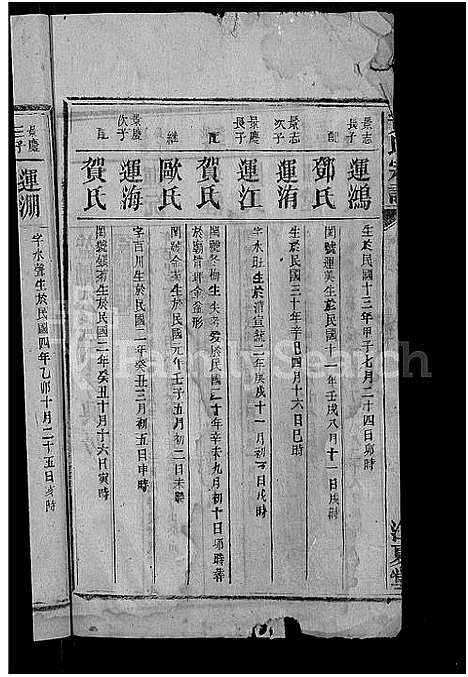 景志
長子
運鴻
生於民國十三年甲子七月二十四日卯時
配
鄧氏
閨號運美生於民國十一年壬戌八月十一日戌時
景志
次子
運洧
生於民國三十年辛巳四月十六日巳時
景慶
長子
運江
字水旺生於清宣統二年庚戌十一月初 日戌時
配
賀氏
閨號冬梅生 於民國二十年辛未九月初十日卯時葬
於廟竹坪金盆形
繼
歐氏
閨號金 民國元年壬子五月初二日未時
景慶
次子
運海
字百川生於民國二年癸丑三月初五日申時
配
賀氏
閨號 生於民國二年癸丑十月十六日寅時
景慶
三子
運淜
字水 生於民國四年乙卯十月二十五日亥時
氏宗譜
堂
FamilySearch